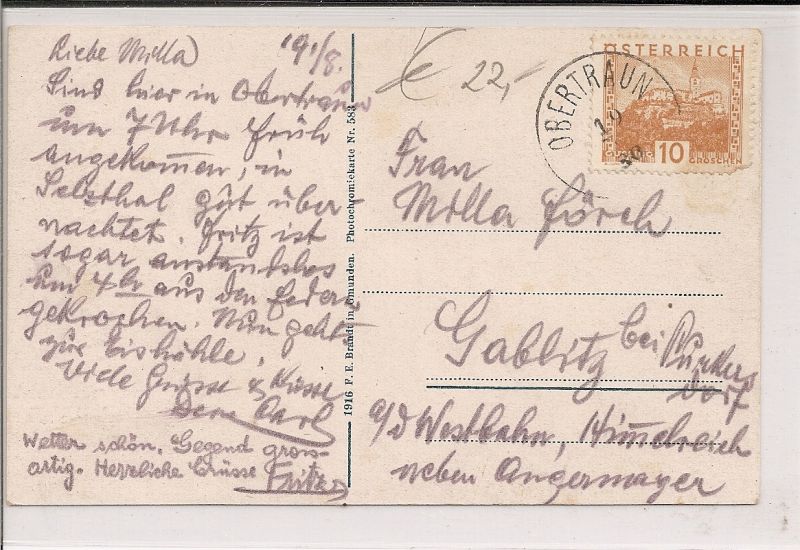 Liebe Milla 19/8.
Sind hier in Obertraun
um 7 Uhr früh
angekommen, in
Selzthal gut über-
nachtet. Fritz ist
sogar anstandslos
um 4h aus den Federn
gekrochen. Nun geht's
zur Eishöhle.
Viele Grüsse & Küsse
Dein Carl
Wetter schön. Gegend gross-
artig. Herzliche Grüsse
Fritz
1916 F. E. Brandt in Gmunden. Photochromiekarte Nr. 583
€ 22,-
ÖSTERREICH
10
GROSCHEN
OBERTRAUN
Frau
Milla Förch
Gablitz bei Purkers
dorf
a/d Westbahn, Himmelreich
neben Angermayer